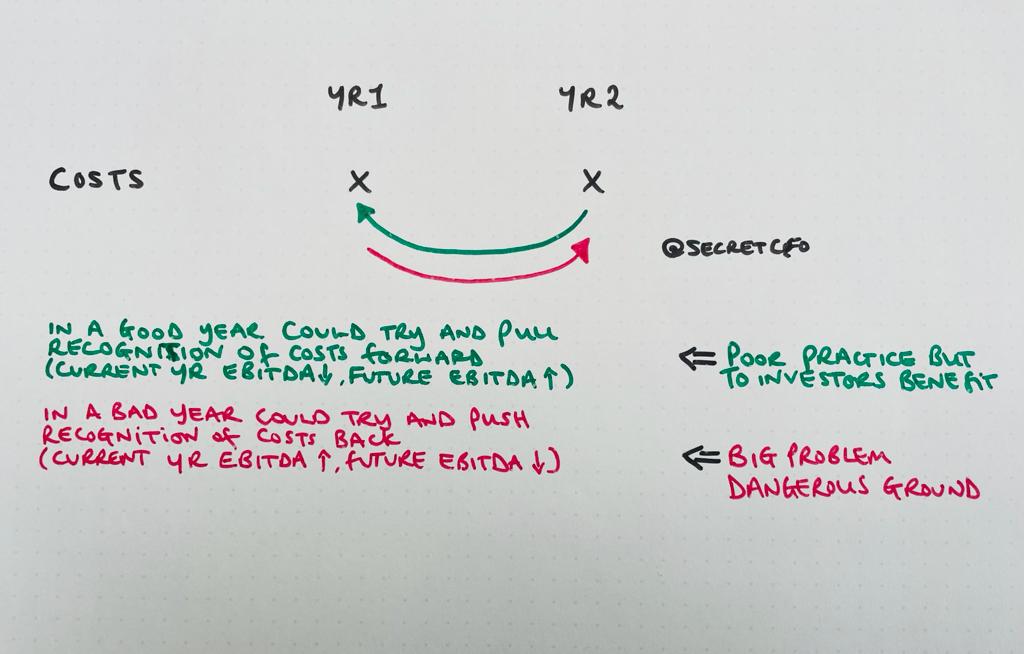 YR1 YR2
COSTS X X
@SECRETCFO
IN A GOOD YEAR COULD TRY AND PULL
RECOGNITION OF COSTS FORWARD
(CURRENT YR EBITDA↓, FUTURE EBITDA↑)
⇐ POOR PRACTICE BUT
TO INVESTORS BENEFIT
IN A BAD YEAR COULD TRY AND PUSH
RECOGNITION OF COSTS BACK
(CURRENT YR EBITDA ↑, FUTURE EBITDA ↓)
⇐ BIG PROBLEM
DANGEROUS GROUND